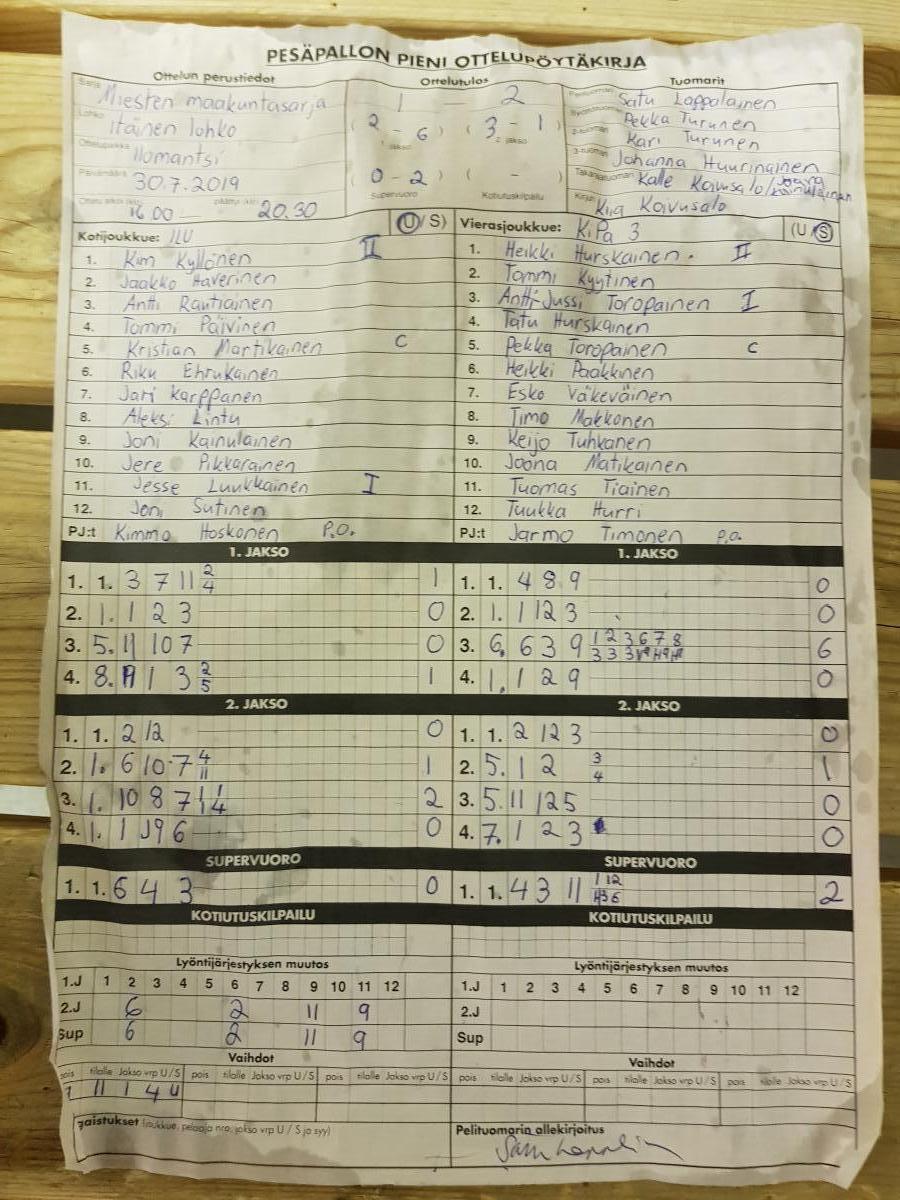 PESÄPALLON PIENI OTTELUPÖYTÄKIRJA
Ottelun perustiedot Ottelutulos Tuomarit
Sarja Miesten maakuntasarja
Lohko Itäinen lohko
Ottelupaikka Ilomantsi
Päivämäärä 30.7.2019
16.00 — 20.30
1 — 2
(2 - 6) (3 - 1)
1. jakso 2. jakso
(0 - 2) -
Supervuoro Kotiutuskilpailu
Satu Lappalainen
Pekka Turunen
2-tuomari Kari Turunen
3-tuomari Johanna Huurinainen
Takarajatuomari Kalle Koivusalo/Joona Kainulainen
Kirjuri Kiia Koivusalo
Kotijoukkue: ILU (U/S)
1. Kim Kyllönen II
2. Jaakko Haverinen
3. Antti Rautiainen
4. Tommi Päivinen
5. Kristian Martikainen C
6. Riku Ehrukainen
7. Jari Karppanen
8. Aleksi Lintu
9. Joni Kainulainen
10. Jere Pikkarainen
11. Jesse Luukkainen I
12. Joni Sutinen
PJ:t Kimmo Hoskonen P.O.
Vierasjoukkue: KiPa 3 (U/S)
1. Heikki Hurskainen. II
2. Tommi Kyytinen
3. Antti-Jussi Toropainen I
4. Tatu Hurskainen
5. Pekka Toropainen C
6. Heikki Paakkinen
7. Esko Väkeväinen
8. Timo Makkonen
9. Keijo Tuhkanen
10. Joona Matikainen
11. Tuomas Tiainen
12. Tuukka Hurri
PJ:t Jarmo Timonen P.O.
1. JAKSO
1. 1. 3 7 11 2 4 1
2. 1. 1 2 3 0
3. 5. 11 10 7 0
4. 8. 1 3 2 5 1
1. JAKSO
1. 1. 4 8 9 0
2. 1. 1 12 3 0
3. 6. 6 3 9 1 2 3 6 7 8 3 3 3 6
4. 1. 1 2 9 0
2. JAKSO
1. 1. 2 12 0
2. 1. 6 10 7 4 11 1
3. 1. 10 8 7 2
4. 1. 1 9 6 0
2. JAKSO
1. 1. 2 12 3 0
2. 5. 1 2 3 4 1
3. 5. 11 12 5 0
4. 7. 1 2 3 0
SUPERVUORO
1. 1. 6 4 3 0
SUPERVUORO
1. 1. 4 3 11 1 12 2
KOTIUTUSKILPAILU
KOTIUTUSKILPAILU
Lyöntijärjestyksen muutos
1.J 1 2 3 4 5 6 7 8 9 10 11 12
2.J 6 2 11 9
Sup 6 2 11 9
Lyöntijärjestyksen muutos
1.J 1 2 3 4 5 6 7 8 9 10 11 12
2.J
Sup
Vaihdot
pois tilalle Jakso vrp U/S pois tilalle Jakso vrp U/S pois tilalle Jakso vrp U/S
7 11 1 4 U
Vaihdot
pois tilalle Jakso vrp U/S pois tilalle Jakso vrp U/S pois tilalle Jakso vrp U/S
(joukkue, pelaaja nro, jakso vrp U / S ja syy)
Pelituomarin allekirjoitus